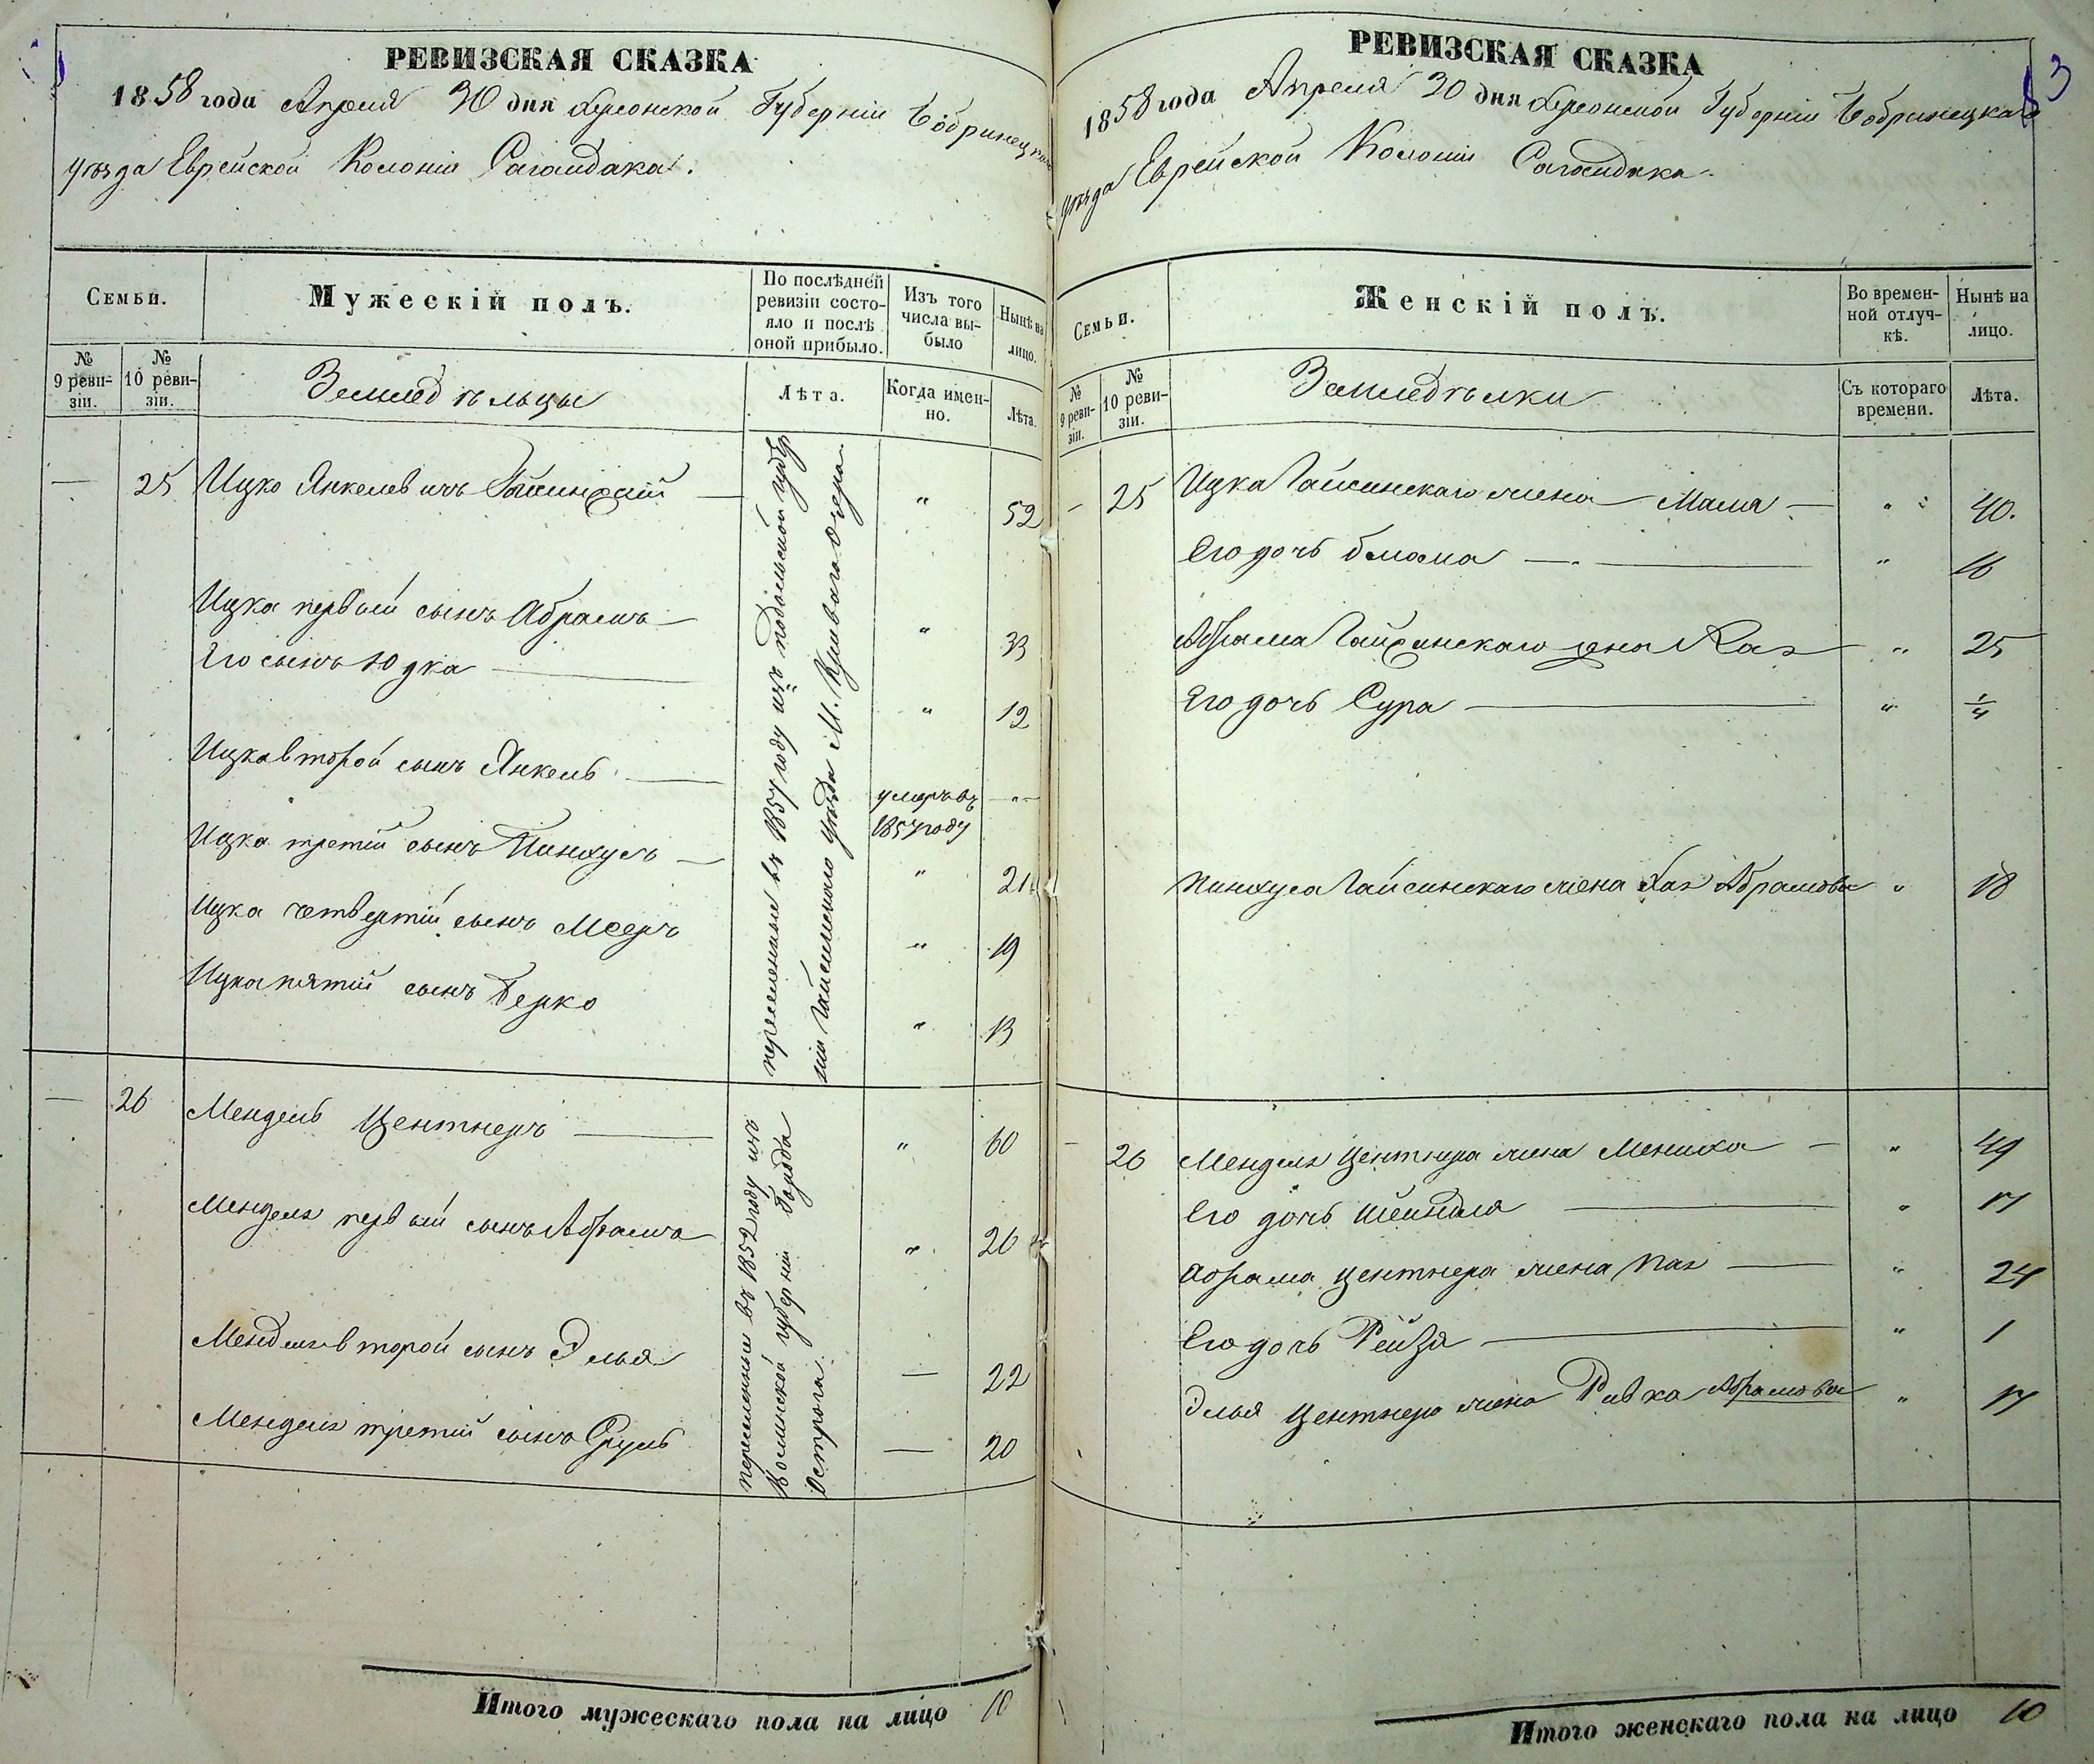 РЕВИЗСКАЯ СКАЗКА
1858 года Апреля 30 дня Херсонской Губерніи Бобринецкаго
уѣзда Еврейской Колоніи Сагайдака.
Семьи.
Мужескій полъ.
По послѣдней ревизіи состояло и послѣ оной прибыло.
Изъ того числа выбыло
Нынѣ на лицо.
№ 9 ревизіи.
№ 10 ревизіи.
Земледѣльцы
Лѣта.
Когда именно.
Лѣта.
— 25 Ицко Янкелевичъ Гайсинскій — " 52
Ицка первый сынъ Абрамъ — " 33
Его сынъ Юдка — " 12
Ицка второй сынъ Янкель — умеръ въ 1857 году — " —
Ицка третій сынъ Пинхусъ — " 21
Ицка четвертій сынъ Мееръ " 19
Ицка пятій сынъ Берко " 13
переселенные въ 1857 году изъ Подольской губер
ніи Гайсинскаго уѣзда М. Криваго Озера
— 26 Мендель Центнеръ — " 60
Менделя первый сынъ Абрамъ " 26
Менделя второй сынъ Элья — 22
Менделя третій сынъ Сруль — 20
переселенные въ 1852 году изъ
Волынской губерніи города
Острога
Итого мужескаго пола на лицо 10
3
РЕВИЗСКАЯ СКАЗКА
1858 года Апреля 30 дня Херсонской Губерніи Бобринецкаго
уѣзда Еврейской Колоніи Сагайдака.
Семьи.
Женскій полъ.
Во временной отлучкѣ.
Нынѣ на лицо.
№ 9 ревизіи.
№ 10 ревизіи.
Земледѣлки
Съ котораго времени.
Лѣта.
— 25 Ицка Гайсинскаго жена — Маля — " 40.
Его дочь Блюма — " 16
Абрама Гайсинскаго жена Хая " 25
Его дочь Сура — " 1/4
Пинхуса Гайсинскаго жена Хая Абрамова " 18
— 26 Менделя Центнера жена Мениха — " 49
Его дочь Шейндля — " 17
Абрама Центнера жена Хая — " 24
Его дочь Рейзя — " 1
Элья Центнера жена Ривка Абрамова " 17
Итого женскаго пола на лицо 10